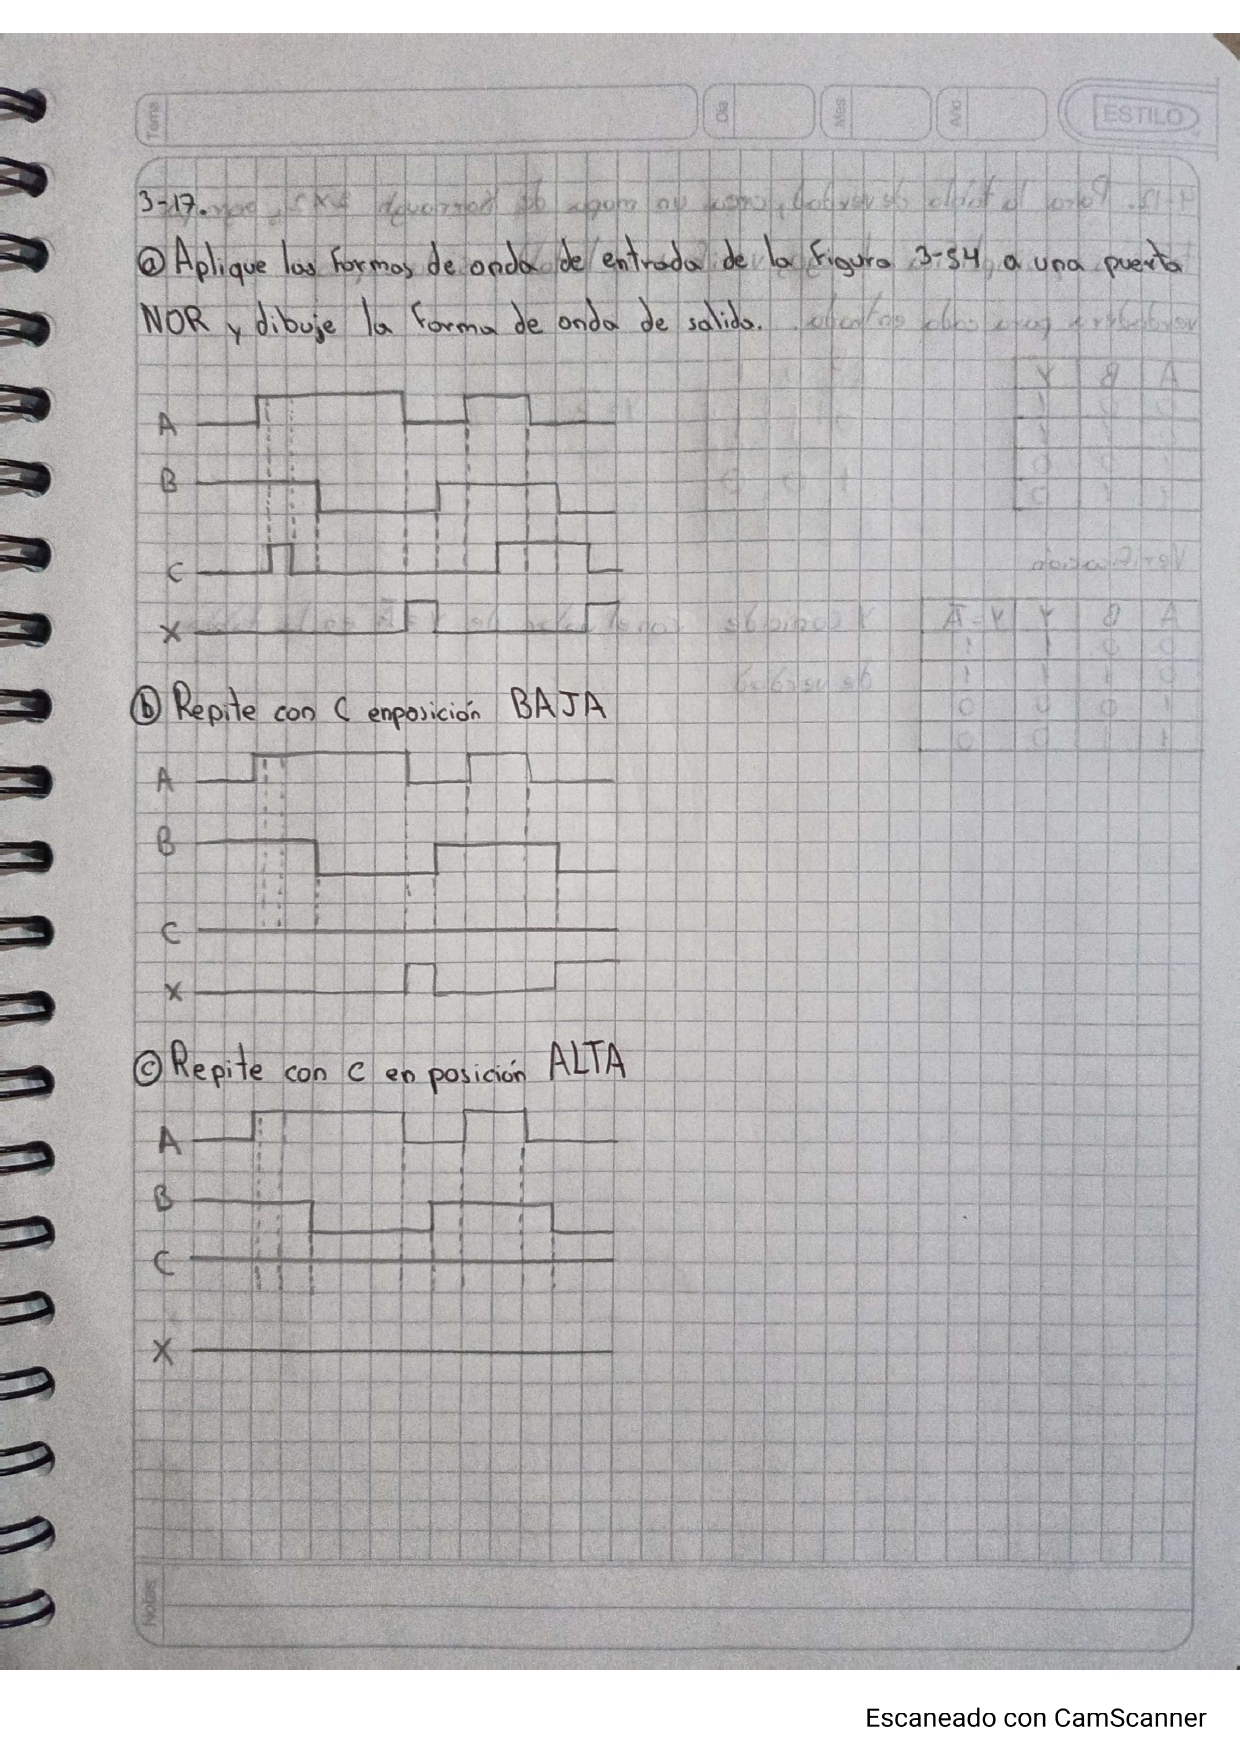 Tema
Dia
Mes
Año
ESTILO
3-17.
ⓐ Aplique las formas de onda de entrada de la figura 3-54 a una puerta
NOR y dibuje la forma de onda de salida.
A
B
C
X
ⓑ Repite con C enposición BAJA
A
B
C
X
ⓒ Repite con C en posición ALTA
A
B
C
X
Notas
Escaneado con CamScanner